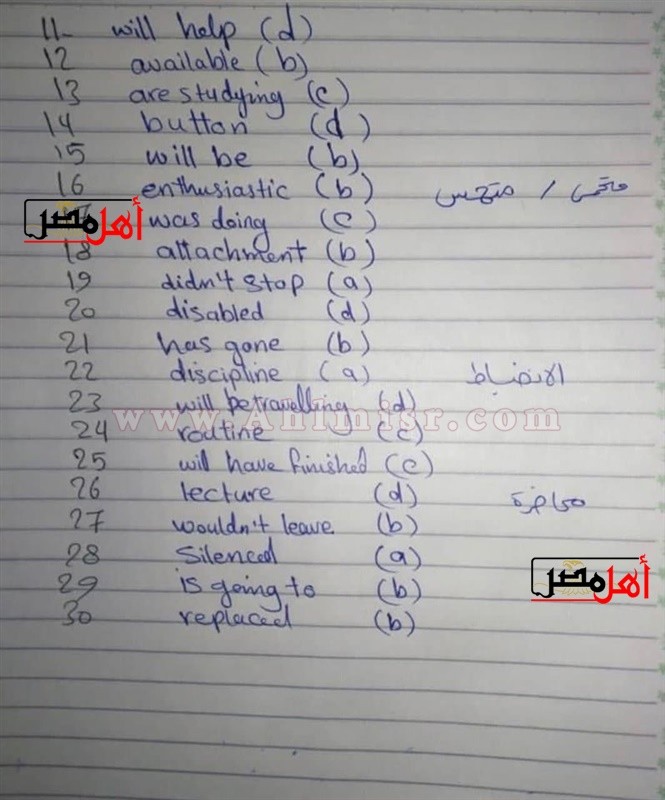 11- will help (d)
12 available (b)
13 are studying (c)
14 button (d)
15 will be (b)
16 enthusiastic (b) متحمس /
17 was doing (c)
أهل مصر
18 attachment (b)
19 didn't stop (a)
20 disabled (d)
21 has gone (b)
22 discipline (a) الانضباط
23 will be travelling (d)
www.Ahlmisr.com
24 routine (c)
25 will have finished (c)
26 lecture (d) محاضرة
27 wouldn't leave (b)
28 Silenced (a)
أهل مصر
29 is going to (b)
30 replaced (b)